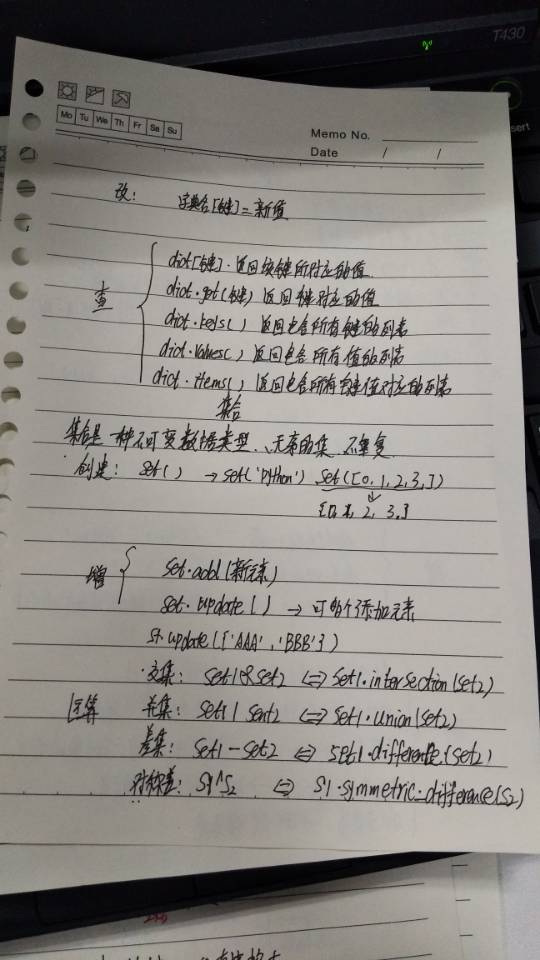 T430
sert
Mo Tu We Th Fr Sa Su
Memo No.
Date / /
改: 字典名[键]=新值
查
dict[键]. 返回该键所对应的值
dict.get(键) 返回键对应的值
dict.keys() 返回包含所有键的列表
dict.values() 返回包含所有值的列表
dict.items() 返回包含所有键值对应的列表
集合
集合是一种不可变数据类型、无序的集 不重复
创建: set() →set('python') set([0,1,2,3,])
{0,1,2,3,}
增
set.add(新元素)
set.update() → 可多个添加元素
st.update(['AAA','BBB'])
运算
交集: set1&set2 <=> set1.intersection(set2)
并集: set1|sent2 <=> set1.union(set2)
差集: set1-set2 <=> set1.difference.(set2)
对称差: S1^S2 <=> S1.symmetric-difference(S2)